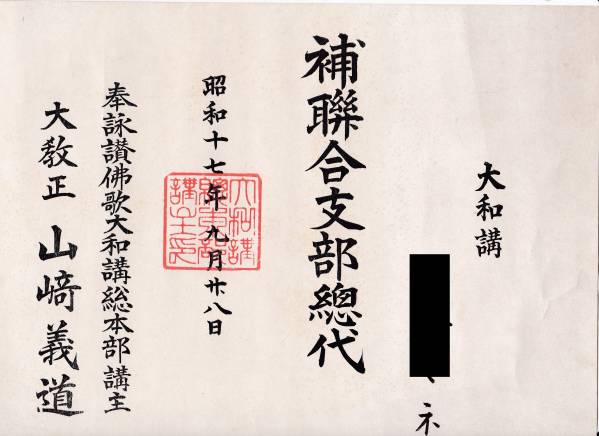 大和講
ネ
補聯合支部總代
昭和十七年九月廿八日
大和講
總本部
講主印
奉詠讃佛歌大和講総本部講主
大教正 山﨑義道